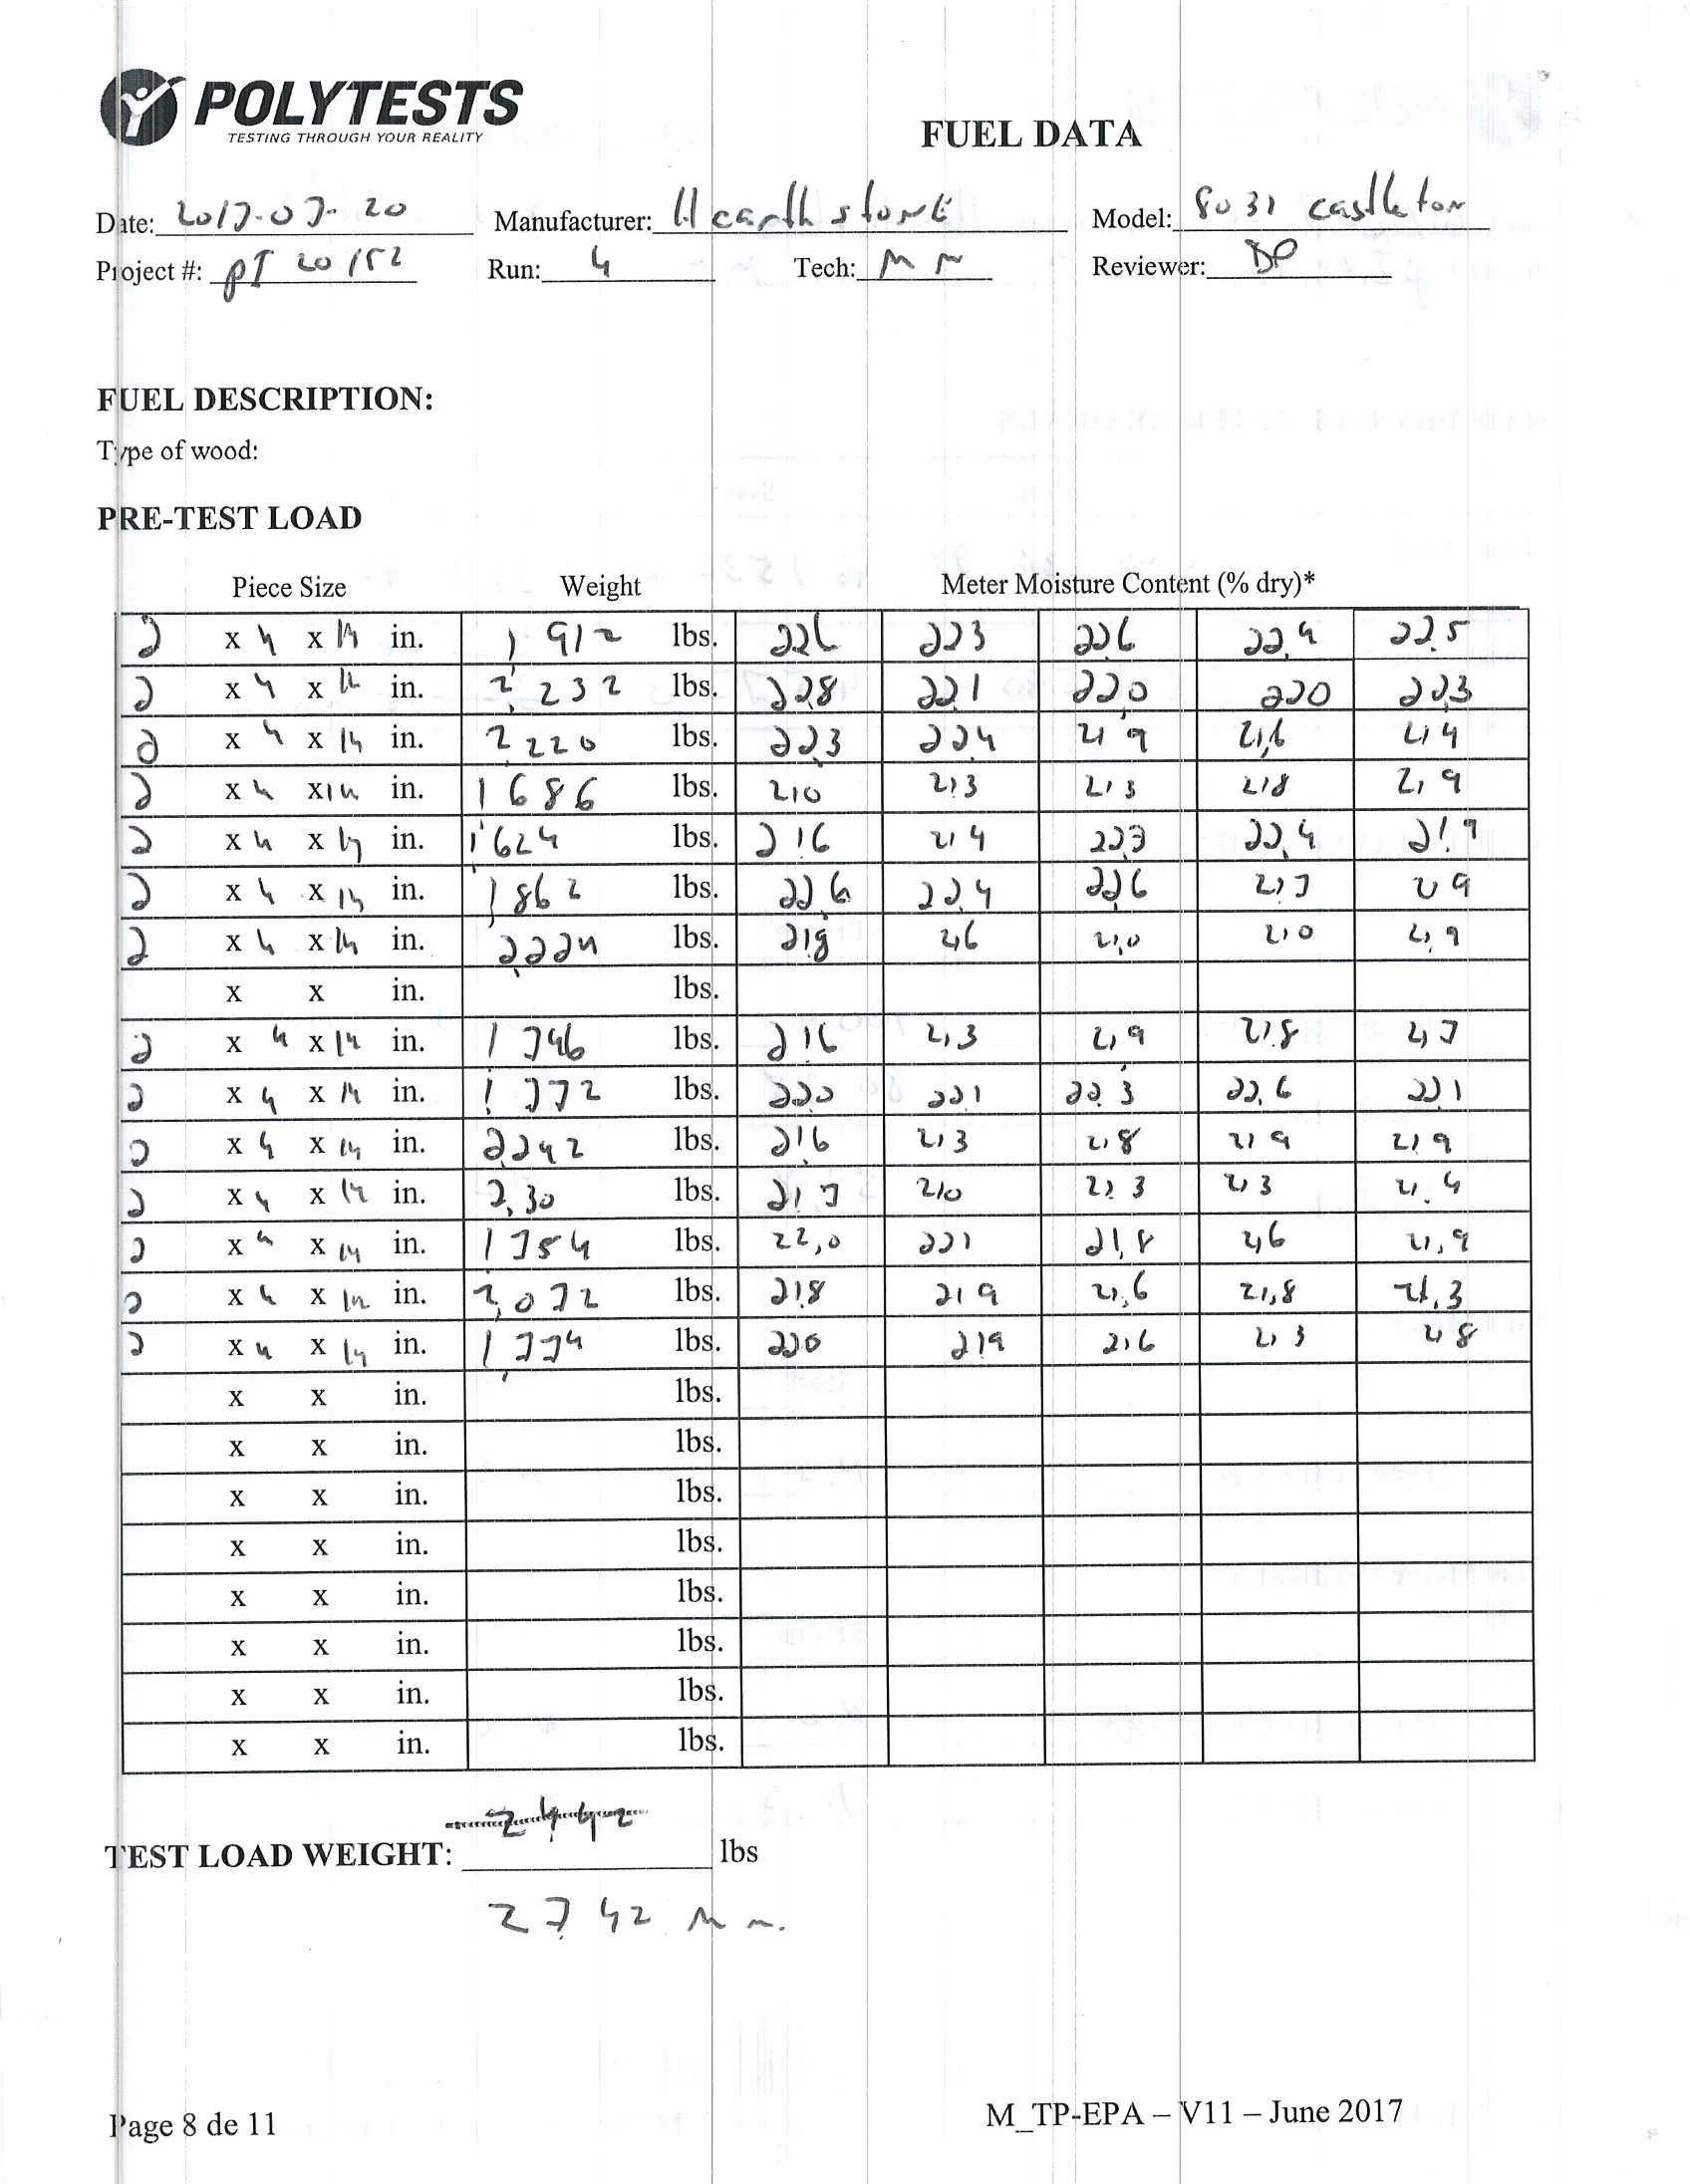 POLYTESTS
TESTING THROUGH YOUR REALITY
FUEL DATA
Date: 2017-07-20 Manufacturer: Hearthstone Model: 8031 castleton
Project #: PI 20152 Run: 4 Tech: MM Reviewer: DP
FUEL DESCRIPTION:
Type of wood:
PRE-TEST LOAD
Piece Size Weight Meter Moisture Content (% dry)*
2 x 4 x 14 in. 1,912 lbs. 22,6 22,3 22,6 22,4 22,5
2 x 4 x 14 in. 2,232 lbs. 22,8 22,1 22,0 22,0 22,3
2 x 4 x 14 in. 2,220 lbs. 22,3 22,4 21,9 21,6 21,4
2 x 4 x 14 in. 1,686 lbs. 21,0 21,3 21,3 21,8 21,9
2 x 4 x 14 in. 1,624 lbs. 21,6 21,4 22,3 22,4 21,9
2 x 4 x 14 in. 1,862 lbs. 22,6 22,4 22,6 21,7 21,9
2 x 4 x 14 in. 2,224 lbs. 21,8 21,6 21,0 21,0 21,9
x x in. lbs.
2 x 4 x 14 in. 1,746 lbs. 21,6 21,3 21,9 21,8 21,7
2 x 4 x 14 in. 1,772 lbs. 22,0 22,1 22,3 22,6 22,1
2 x 4 x 14 in. 2,242 lbs. 21,6 21,3 21,8 21,9 21,9
2 x 4 x 14 in. 2,30 lbs. 21,7 21,0 21,3 21,3 21,4
2 x 4 x 14 in. 1,754 lbs. 22,0 22,1 21,8 21,6 21,9
2 x 4 x 14 in. 2,072 lbs. 21,8 21,9 21,6 21,8 21,3
2 x 4 x 14 in. 1,774 lbs. 22,0 21,9 21,6 21,3 21,8
x x in. lbs.
x x in. lbs.
x x in. lbs.
x x in. lbs.
x x in. lbs.
x x in. lbs.
x x in. lbs.
x x in. lbs.
TEST LOAD WEIGHT: lbs
27,42 MM.
Page 8 de 11
M_TP-EPA – V11 – June 2017